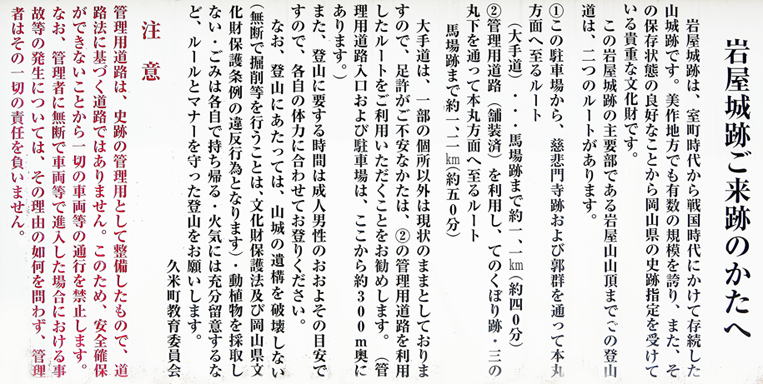 岩屋城跡ご来跡のかたへ
岩屋城跡は、室町時代から戦国時代にかけて存続した
山城跡です。美作地方でも有数の規模を誇り、また、そ
の保存状態の良好なことから岡山県の史跡指定を受けて
いる貴重な文化財です。
この岩屋城跡の主要部である岩屋山山頂までの登山
道は、二つのルートがあります。
①この駐車場から、慈悲門寺跡および郭群を通って本丸
方面へ至るルート
(大手道)・・・馬場跡まで約一、一㎞(約四0分)
②管理用道路(舗装済)を利用し、てのくぼり跡・三の
丸下を通って本丸方面へ至るルート
馬場跡まで約一、二㎞(約五0分)
大手道は、一部の個所以外は現状のままとしておりま
すので、足許がご不安なかたは、②の管理用道路を利用
したルートをご利用いただくことをお勧めします。(管
理用道路入口および駐車場は、ここから約300m奥に
あります。)
また、登山に要する時間は成人男性のおおよその目安で
すので、各自の体力に合わせてお登りください。
なお、登山にあたっては、山城の遺構を破壊しない
(無断で掘削等を行うことは、文化財保護法及び岡山県文
化財保護条例の違反行為となります)・動植物を採取し
ない・ごみは各自で持ち帰る・火気には充分留意するな
ど、ルールとマナーを守った登山をお願いします。
久米町教育委員会
注意
管理用道路は、史跡の管理用として整備したもので、道
路法に基づく道路ではありません。このため、安全確保
ができないことから一切の車両等の通行を禁止します。
なお、管理者に無断で車両等で進入した場合における事
故等の発生については、その理由の如何を問わず、管理
者はその一切の責任を負いません。